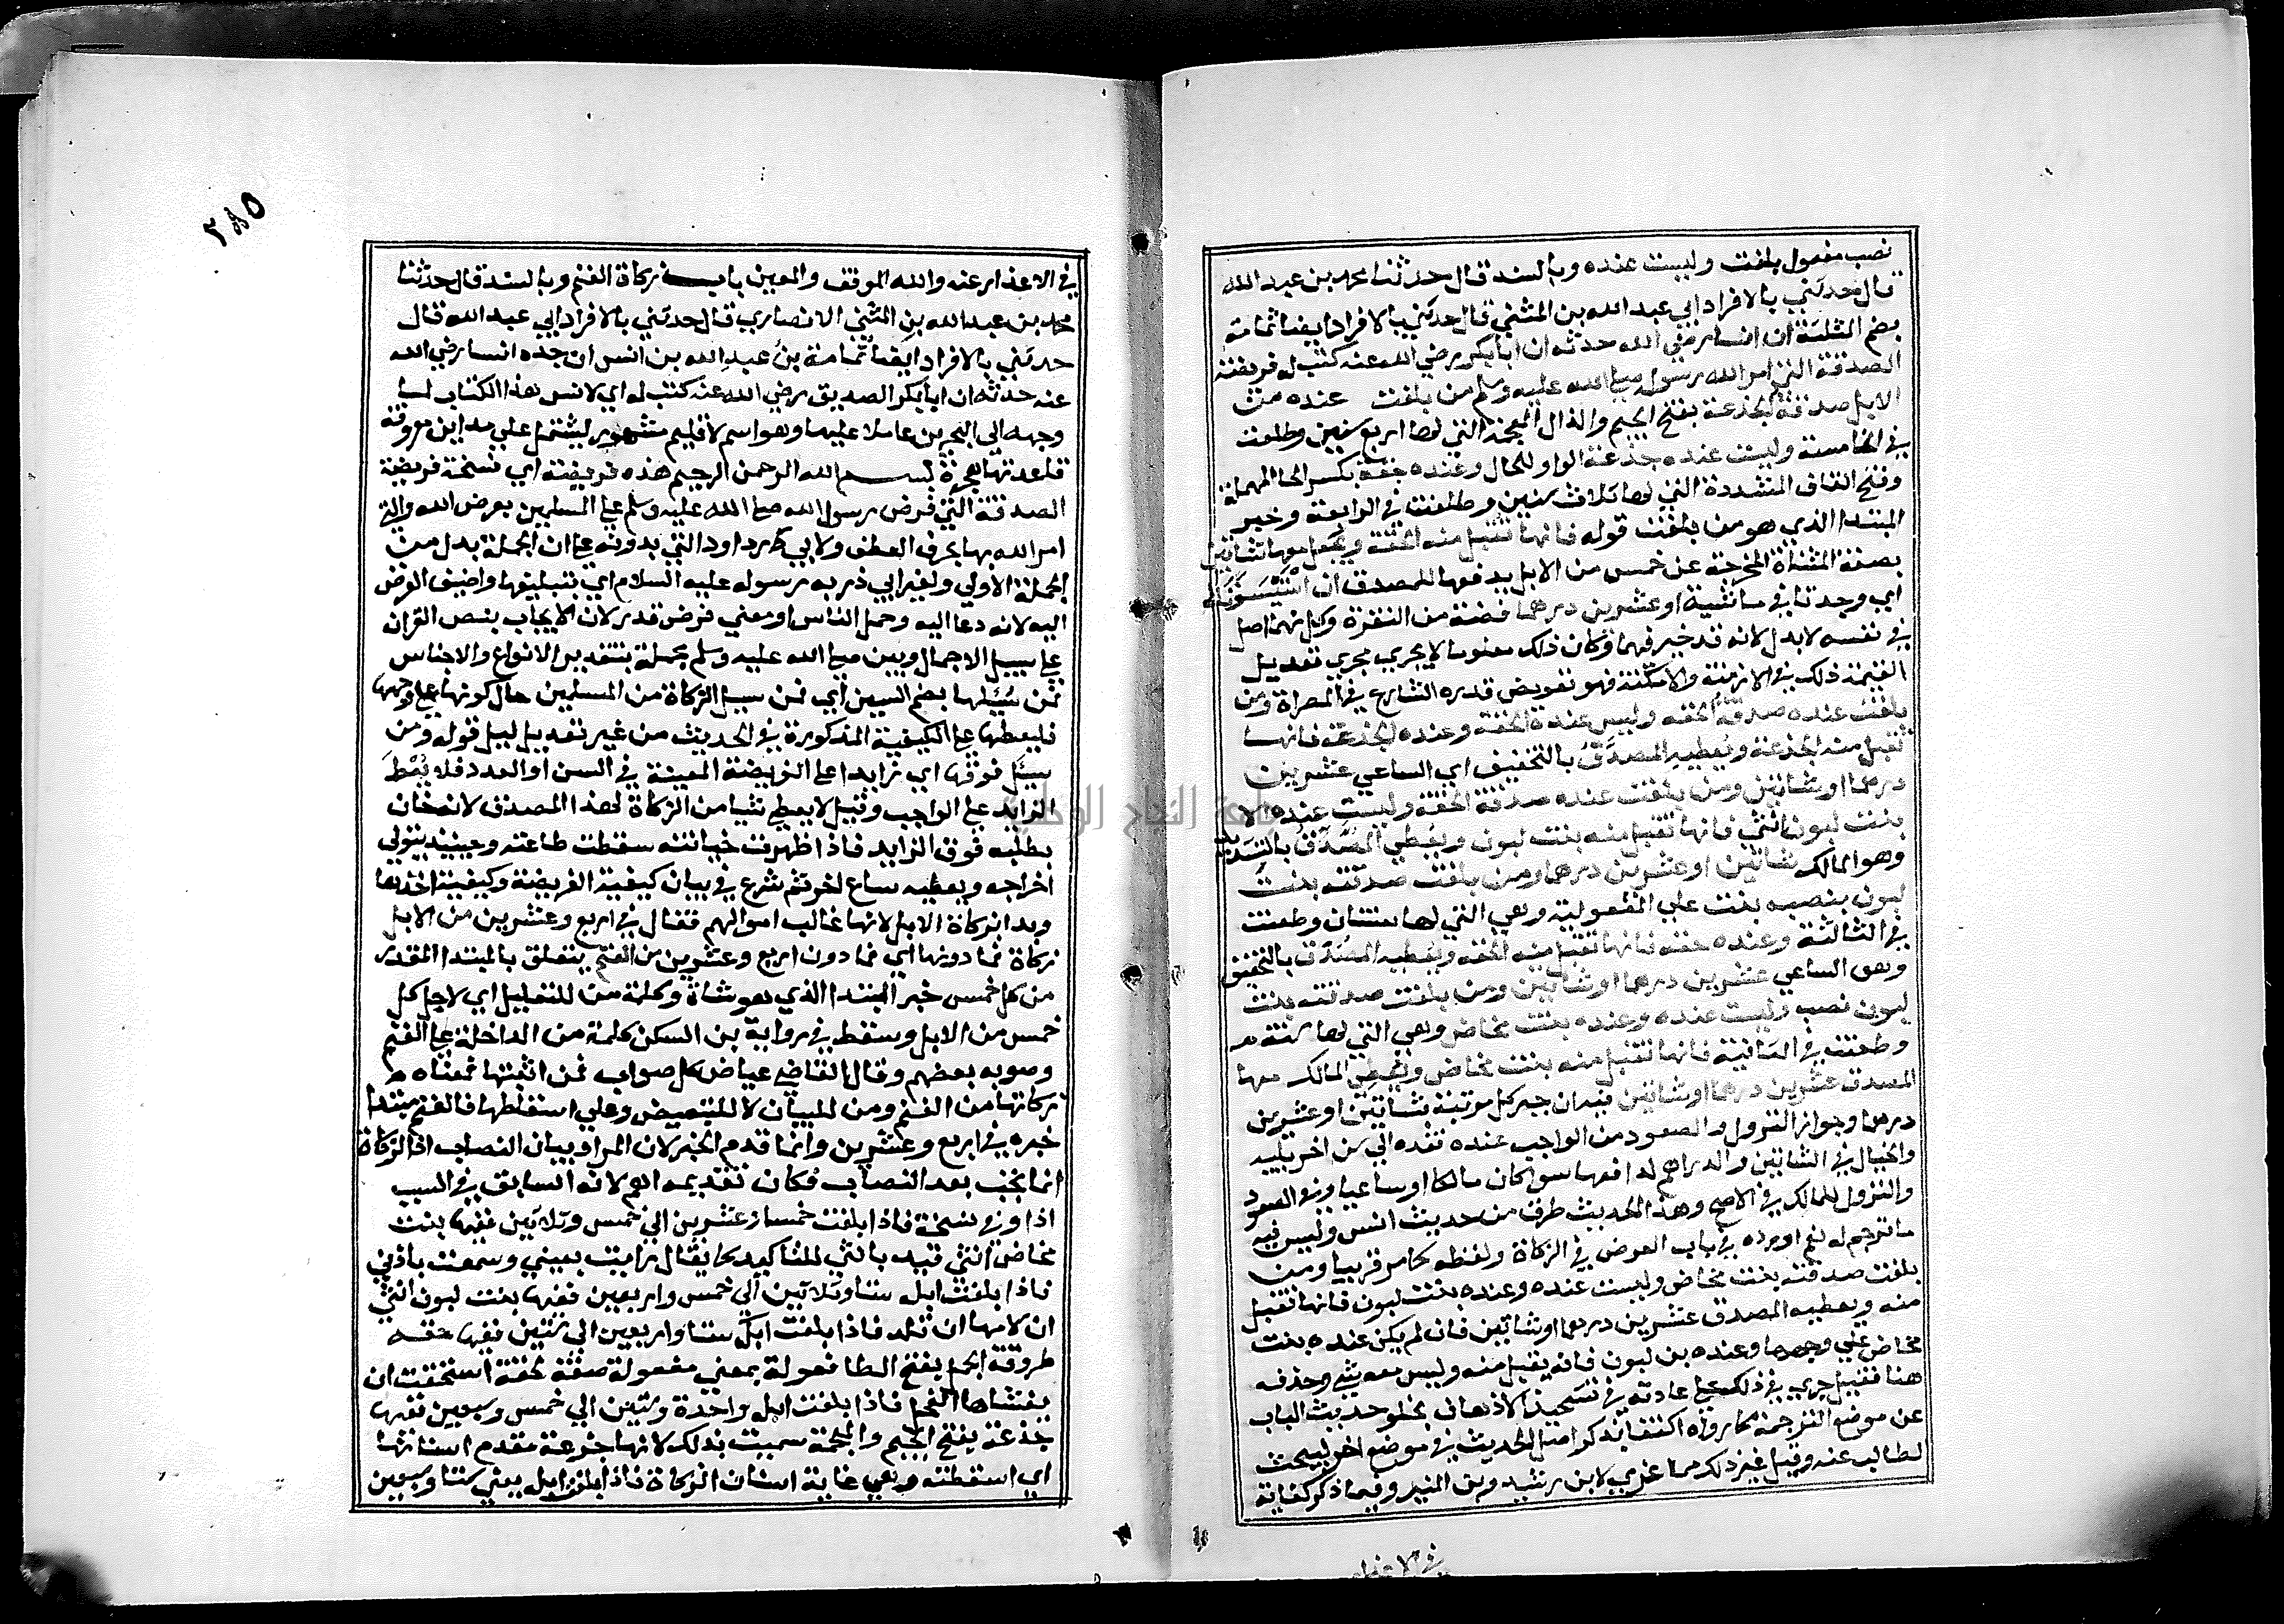 نصب مفعول بلغت وليست عنده وبالسند قال حدثنا محمد بن عبد الله
قال حدثني بالافراد ابي عبد الله بن المثني قال حدثني بالافراد ايضا ثمامة
بضم المثلثة ان انسا رضي الله حدثه ان ابا بكر رضي الله عنه كتب له فريضة
الصدقة التي امر الله رسوله صلي الله عليه وسلم من بلغت عنده من
الابل صدقة الجذعة بفتح الجيم والذال المعجمة التي لها اربع سنين وطعنت
في الخامسة وليست عنده جذعة الواو للحال وعنده حقة بكسر الحا المهملة
وفتح القاف المشددة التي لها ثلاث سنين وطعنت في الرابعة وخبر
المبتدا الذي هو من بلغت قوله فانها تقبل منه الحقة ويجعل معها شاتين
بصفة الشاة المخرجة عن خمس من الابل يدفعها للمصدق ان استيسرتا له
اي وجدتا في ماشية او عشرين درهما فضة من النقرة وكل منهما اصل
في نفسه لا بدل لانه قد خير فيهما وكان ذلك معلوما لا يجري مجري تعديل
القيمة ذلك في الازمنة والامكنة فهو تعويض قدره الشارع في المصراة ومن
بلغت عنده صدقة الحقة وليس عنده الحقة وعنده الجذعة فانها
تقبل منه الجذعة ويعطيه المصدق بالتخفيف اي الساعي عشرين
درهما او شاتين ومن بلغت عنده صدقة الحقة وليست عنده الا
بنت لبون انثي فانها تقبل منه بنت لبون ويعطي المصدق بالتشديد
وهو المالك شاتين او عشرين درهما ومن بلغت صدقته بنت
لبون بنصب بنت علي المفعولية وهي التي لها سنتان وطعنت
في الثالثة وعنده حقة فانها تقبل منه الحقة ويعطيه المصدق بالتخفيف
وهو الساعي عشرين درهما او شاتين ومن بلغت صدقته بنت
لبون نصب وليست عنده وعنده بنت مخاض وهي التي لها سنة
وطعنت في الثانية فانها تقبل منه بنت مخاض ويعطي المالك معها
المصدق عشرين درهما او شاتين فيه ان جبر كل مرتبة شاتين او عشرين
درهما وجواز النزول والصعود من الواجب عنده فقده الي سن اخر يليه
والخيار في الشاتين والدراهم لدافعها سوا كان مالكا او ساعيا وفي الصعود
والنزول للمالك في الاصح وهذا الحديث طرف من حديث انس وليس فيه
ما ترجم له نعم اورده في باب العرض في الزكاة ولفظه كما مر قريبا ومن
بلغت صدقته بنت مخاض وليست عنده وعنده بنت لبون فانها تقبل
منه ويعطيه المصدق عشرين درهما او شاتين فان لم يكن عنده بنت
مخاض علي وجهها وعنده بن لبون فانه يقبل منه وليس معه شي وحذفه
هنا فقيل جري في ذلك علي عادته في تشحيذ الاذهان بخلو حديث الباب
عن موضع الترجمة كما رواه اكتفا بذكر اصل الحديث في موضع اخر ليبحث
لطالب عنه وقيل غير ذلك مما عزي لابن رشيد وبن المنير وفيما ذكر كفاية
في الاعتذار
٢٨٥
في الاعذار عنه والله الموفق والمعين باب زكاة الغنم وبالسند قال حدثنا
محمد بن عبد الله بن المثني الانصاري قال حدثني بالافراد ابي عبد الله قال
حدثني بالافراد ايضا ثمامة بن عبد الله بن انس ان جده انسا رضي الله
عنه حدثه ان ابا بكر الصديق رضي الله عنه كتب له اي لانس هذا الكتاب لما
وجهه الي البحرين عاملا عليها وهو اسم لاقليم مشهور يشتمل علي مدائن معروفة
قاعدتها هجر بسم الله الرحمن الرحيم هذه فريضة اي نسخة فريضة
الصدقة التي فرض رسول الله صلي الله عليه وسلم علي المسلمين بعرض الله والتي
امر الله بها بحرف العطف ولابي داود التي بدونه علي ان الجملة بدل من
الجملة الاولي ولغير ابي ذر به رسوله عليه السلام اي بتبليغها واضيف الفرض
اليه لانه دعا اليه وحمل الناس او معني فرض قدر لان الايجاب بنص القران
علي سبيل الاجمال وبين صلي الله عليه وسلم مجمله بتقدير الانواع والاجناس
فمن سئلها بضم السين اي فمن سيل الزكاة من المسلمين حال كونها علي وجهها
فليعطها علي الكيفية المذكورة في الحديث من غير تعديل ليل قوله ومن
سيل فوقها اي زايدا علي الفريضة المعينة في السن او العدد فلا يعط
الزايد علي الواجب وقيل لا يعطي شيا من الزكاة لهذا المصدق لانه خان
بطلبه فوق الزايد فاذا ظهرت خيانته سقطت طاعته وحينيذ يتولي
اخراجه ويعطيه ساع اخر ثم شرع في بيان كيفية الفريضة وكيفية اخذها
وبدا بزكاة الابل لانها غالب اموالهم فقال في اربع وعشرين من الابل
زكاة فما دونها اي فما دون اربع وعشرين من الغنم يتعلق بالمبتدا المقدر
من كل خمس خبر المبتدا الذي هو شاة وكلمة من للتعليل اي لاجل كل
خمس من الابل وسقط في رواية بن السكن كلمة من الداخلة علي الغنم
وصوبه بعضهم وقال القاضي عياض كل صواب فمن اثبتها فمعناه
زكاتها من الغنم ومن للبيان لا للتبعيض وعلي اسقاطها فالغنم مبتدا
خبره في اربع وعشرين وانما قدم الخبر لان المراد بيان النصاب اذ الزكاة
انما تجب بعد النصاب فكان تقديمه اهم لانه السابق في السبب
اذا وفي نسخة فاذا بلغت خمسا وعشرين الي خمس وثلاثين ففيها بنت
مخاض انثي قيده بانثي للتاكيد كما يقال رايت بعيني وسمعت باذني
فاذا بلغت ابله ستا وثلاثين الي خمس واربعين ففيها بنت لبون انثي
ان لامها ان تلد فاذا بلغت ابله ستا واربعين الي ستين ففيها حقه
طروقة الجمل بفتح الطا فعولة بمعني مفعولة صفة لحقة استحقت ان
يغشاها الفحل فاذا بلغت ابله واحدة وستين الي خمس وسبعين ففيها
جذعة بفتح الجيم والمعجمة سميت بذلك لانها جذعت مقدم اسنانها
اي اسقطته وهي غاية اسنان الزكاة فاذا بلغت ابله يعني ستا وسبعين